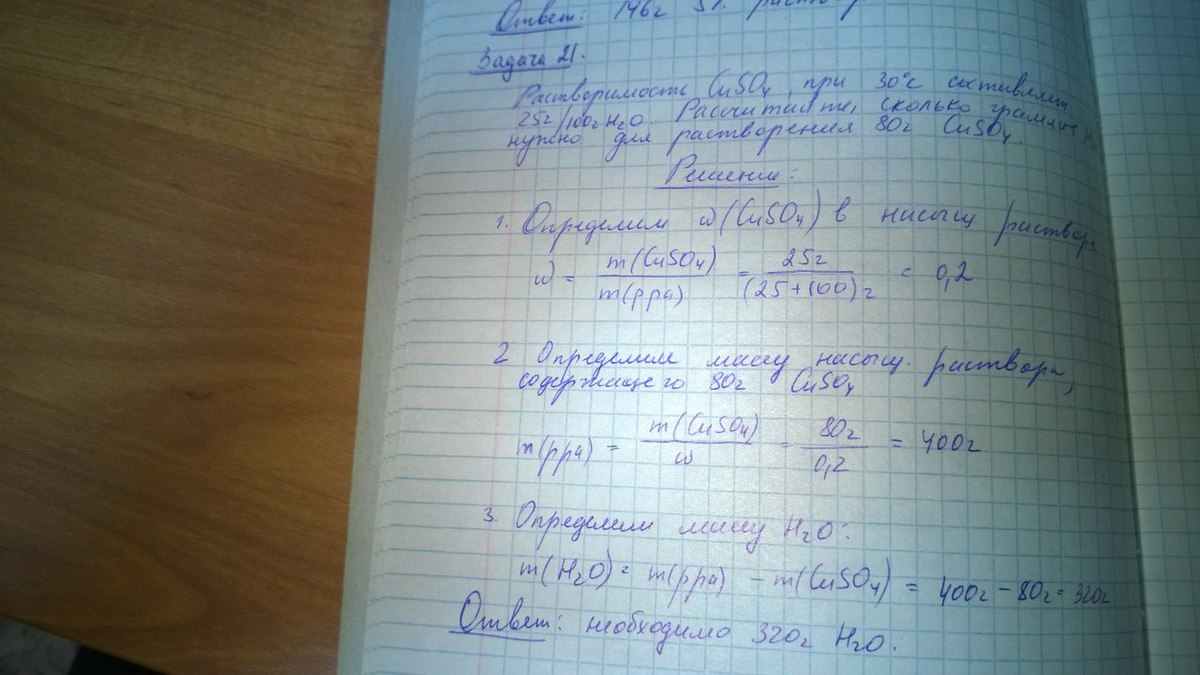 Ответ: 146г 5%
Задача 21.
Растворимость CuSO₄ при 30°C составляет
25г/100г H₂O. Рассчитайте, сколько грамм
нужно для растворения 80г CuSO₄.
Решение:
1. Определим ω(CuSO₄) в насыщ раствор
ω = m(CuSO₄) / m(рра) = 25г / (25+100)г = 0,2
2 Определим массу насыщ. раствора,
содержащего 80г CuSO₄
m(рра) = m(CuSO₄) / ω = 80г / 0,2 = 400г
3. Определим массу H₂O:
m(H₂O) = m(рра) - m(CuSO₄) = 400г - 80г = 320г
Ответ: необходимо 320г H₂O.